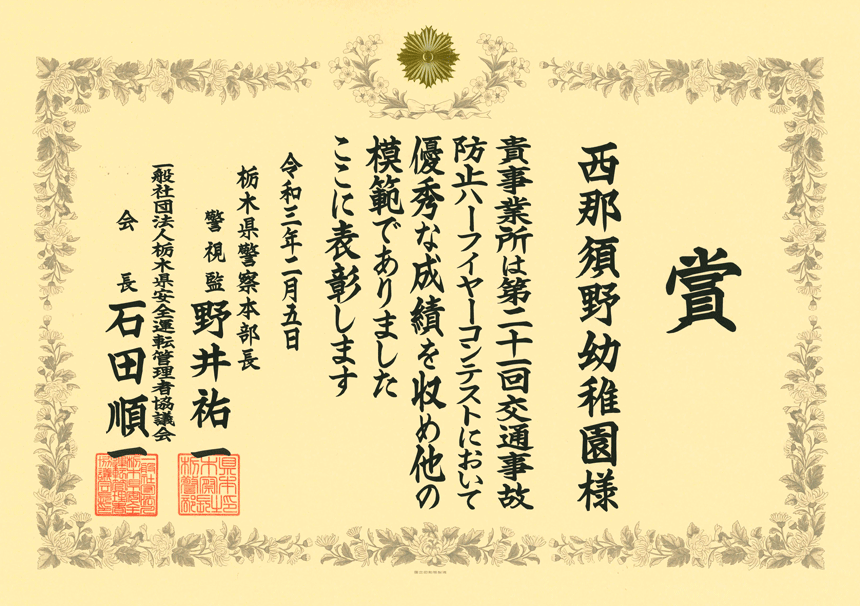 賞
西那須野幼稚園様
貴事業所は第二十一回交通事故
防止ハーフイヤーコンテストにおいて
優秀な成績を収め他の
模範でありました
ここに表彰します
令和三年二月五日
栃木県警察本部長
警視監 野井祐一
一般社団法人栃木県安全運転管理者協議会
会長 石田順一